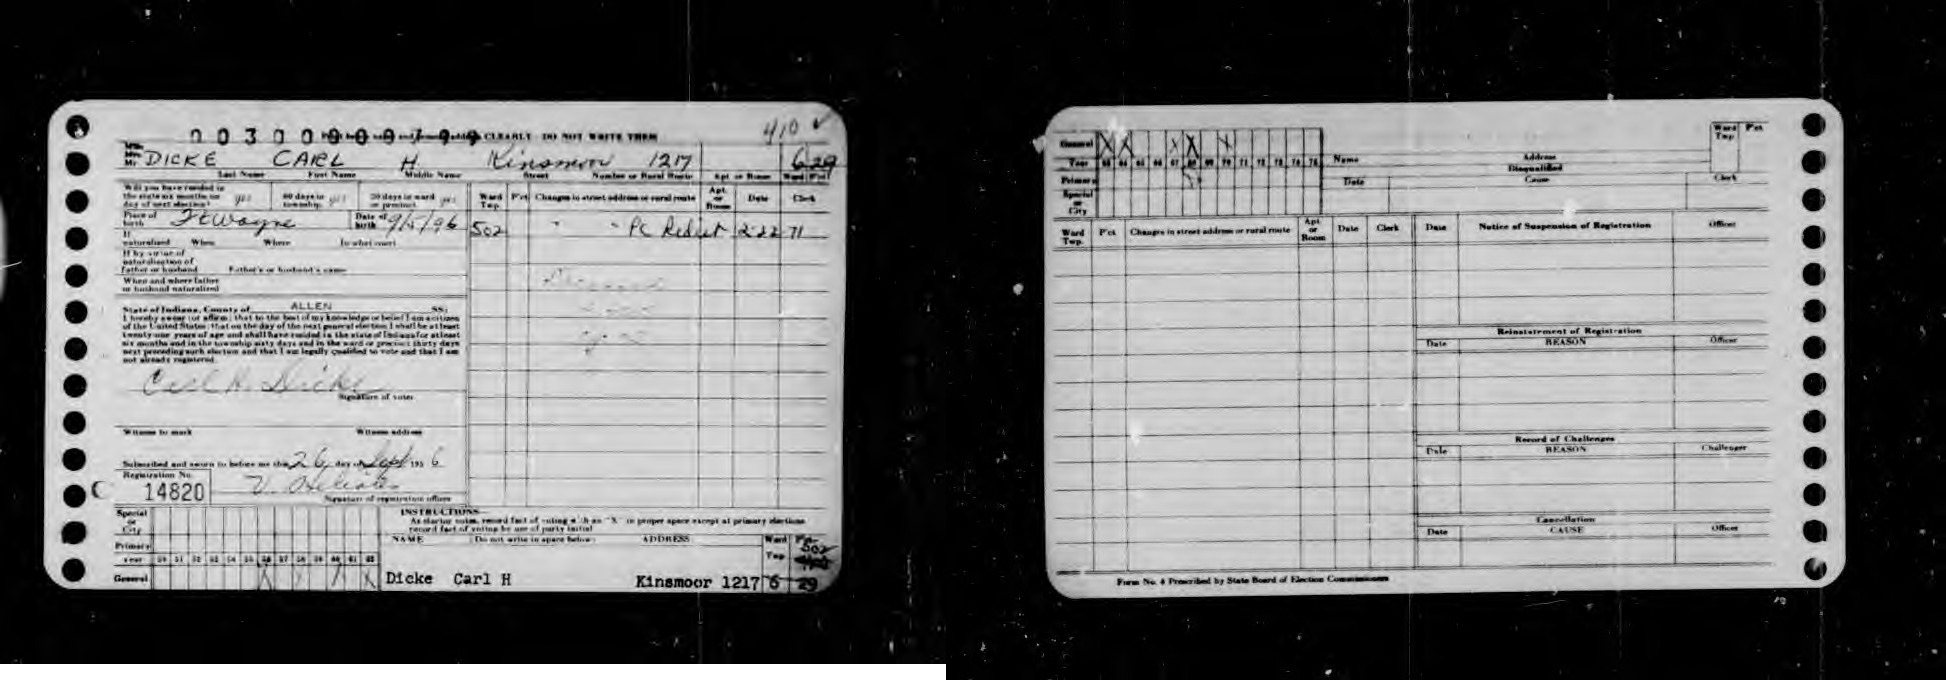 410 ✓
0030000799 CLEARLY - DO NOT WRITE THEM
Mrs.
Mr. DICKE CARL H. Kinsmoor 1217 6 29
Last Name First Name Middle Name Street Number or Rural Route Apt. or Room Ward Pct.
Will you have resided in the state six months on day of next election? yes 60 days in township yes 30 days in ward or precinct yes
Ward Twp. P'ct Changes in street address or rural route Apt. or Room Date Clerk
Place of birth Ft Wayne Date of birth 9/5/96
502 " " Pc Redist 2-22 71
If naturalized When Where In what court
If by virtue of naturalization of father or husband Father's or husband's name
When and where father or husband naturalized
State of Indiana, County of ALLEN SS:
I hereby swear (or affirm) that to the best of my knowledge or belief I am a citizen
of the United States; that on the day of the next general election I shall be at least
twenty-one years of age and shall have resided in the state of Indiana for at least
six months and in the township sixty days and in the ward or precinct thirty days
next preceding such election and that I am legally qualified to vote and that I am
not already registered.
Carl H. Dicke
Signature of voter
Witness to mark Witness address
Subscribed and sworn to before me this 26 day of Sept 1956
Registration No.
14820 V.
Signature of registration officer
Special or City
Primary
Year
General
INSTRUCTIONS
As elector votes, record fact of voting with an "X" in proper space except at primary elections
record fact of voting by use of party initial
NAME Do not write in space below: ADDRESS Ward Twp. Pct.
502
Dicke Carl H Kinsmoor 1217 6 29
General
Year 63 64 65 66 67 68 69 70 71 72 73 74 75
Primary
Special or City
Name Address Ward Twp. P'ct.
Disqualified
Date Cause Clerk
Ward Twp. P'ct Changes in street address or rural route Apt. or Room Date Clerk
Date Notice of Suspension of Registration Officer
Reinstatement of Registration
Date REASON Officer
Record of Challenges
Date REASON Challenger
Cancellation
Date CAUSE Officer
Form No. 4 Prescribed by State Board of Election Commissioners